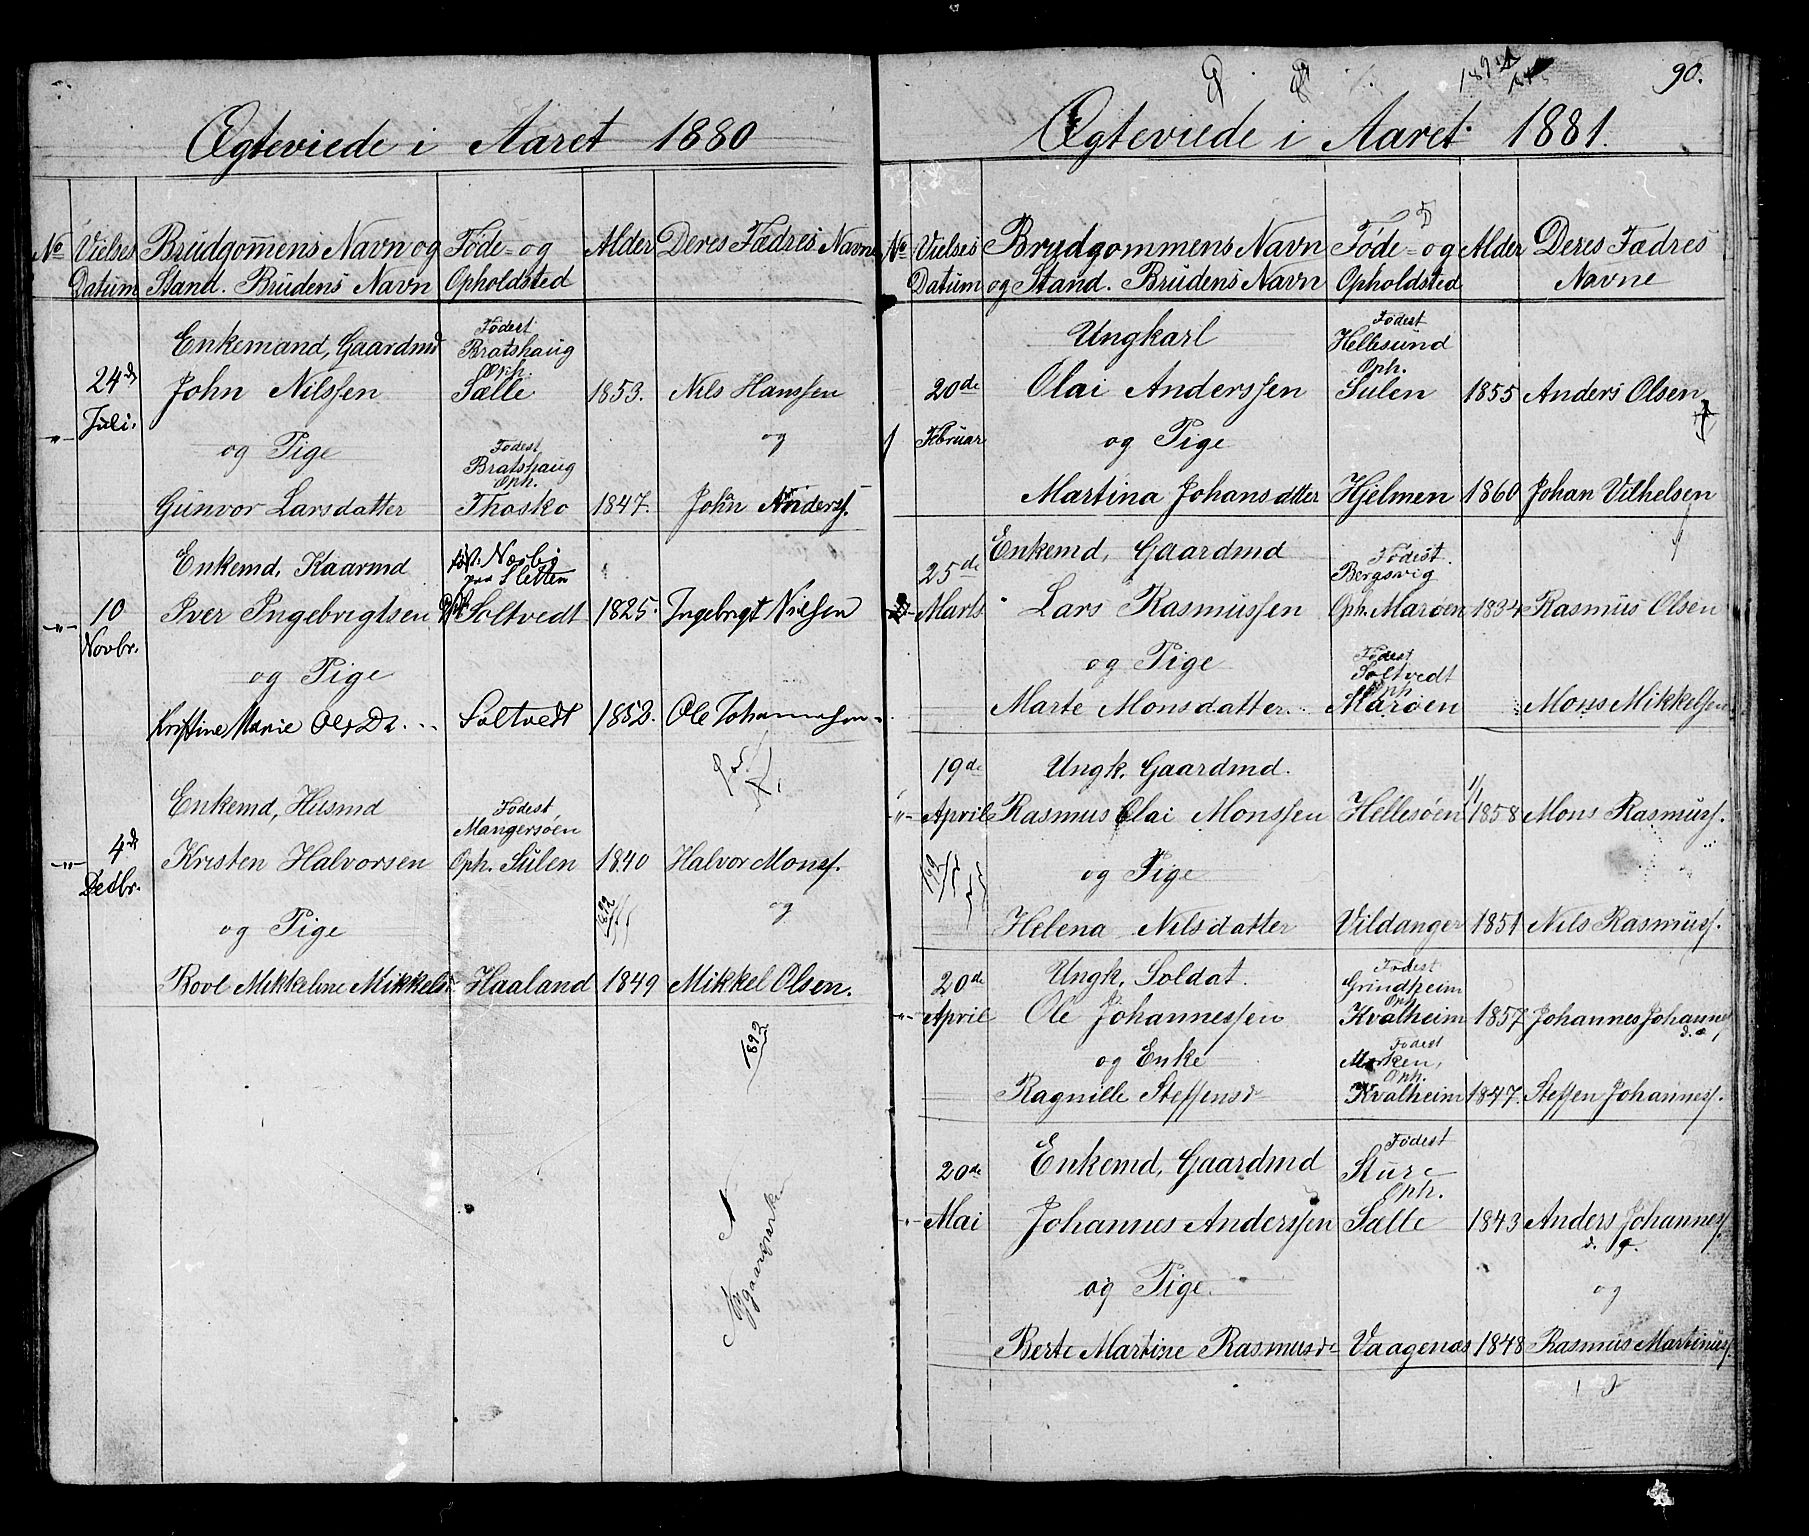 Ægteviede i Aaret 1880
No Vielses Brudgommens Navn og Føde- og Alder Deres Fædres Navne
Datum Stand. Brudens Navn Opholdsted
Enkemand, Gaardmd Fødest Bratshaug
24de John Nilssen Oph. Sælle 1853. Nils Hanssen
Juli. og Pige Fødest Bratshaug og
Gunvor Larsdatter Oph. Thosko 1847. John Anderss.
Enkemd, Kaarmd
paa Sletten
10 Iver Ingebrigtsen Oph. Soltvedt 1825. Ingebrigt Nielsen
Novbr. og Pige
Kristine Marie Soltvedt 1852. Ole Johannesen
Enkemd, Husmd Fødest Mangersøen
4de Kristen Halvorsen Oph. Sulen 1840 Halvor Monss.
Decbr. og Pige 1892 og
Bovl Mikkeline Mikkelsd Haaland 1849 Mikkel Olsen.
1892
90.
Ægteviede i Aaret 1881.
No Vielses Brudgommens Navn Føde- og Alder Deres Fædres
Datum og Stand. Brudens Navn Opholdsted Navne
Ungkarl Fødest Hellesund
20de Olai Anderssen Oph. Sulen 1855 Anders Olsen
1 Februar og Pige
Martina Johansdatter Hjelmen 1860 Johan Vilhelsen
Enkemd, Gaardmd Fødest.
25de Bergsvig
Marts Lars Rasmussen Oph. Marøen 1834 Rasmus Olsen
og Pige Fødest Soltvedt
Marte Monsdatter Oph Marøen Mons Mikkelsen
19de Ungk. Gaardmd.
-"- April Rasmus Olai Monssen Hellesøen 1858 Mons Rasmuss.
og Pige
Helena Nilsdatter Vildanger 1851 Nils Rasmuss.
20de Ungk, Soldat. Fødest Grindheim
-"- April Ole Johannessen Oph Kvalheim 1857 Johannes Johanness
og Enke Fødest Morken, d.æ
Ragnille Steffensd Oph. Kvalheim 1847. Steffen Johanness.
20de Enkemd, Gaardmd Fødest Sture
-"- Mai Johannes Anderssen Oph. Sælle 1843 Anders Johanness.
og Pige. og
Berte Martine Rasmusd Vaagenæs 1848 Rasmus Martinuss.